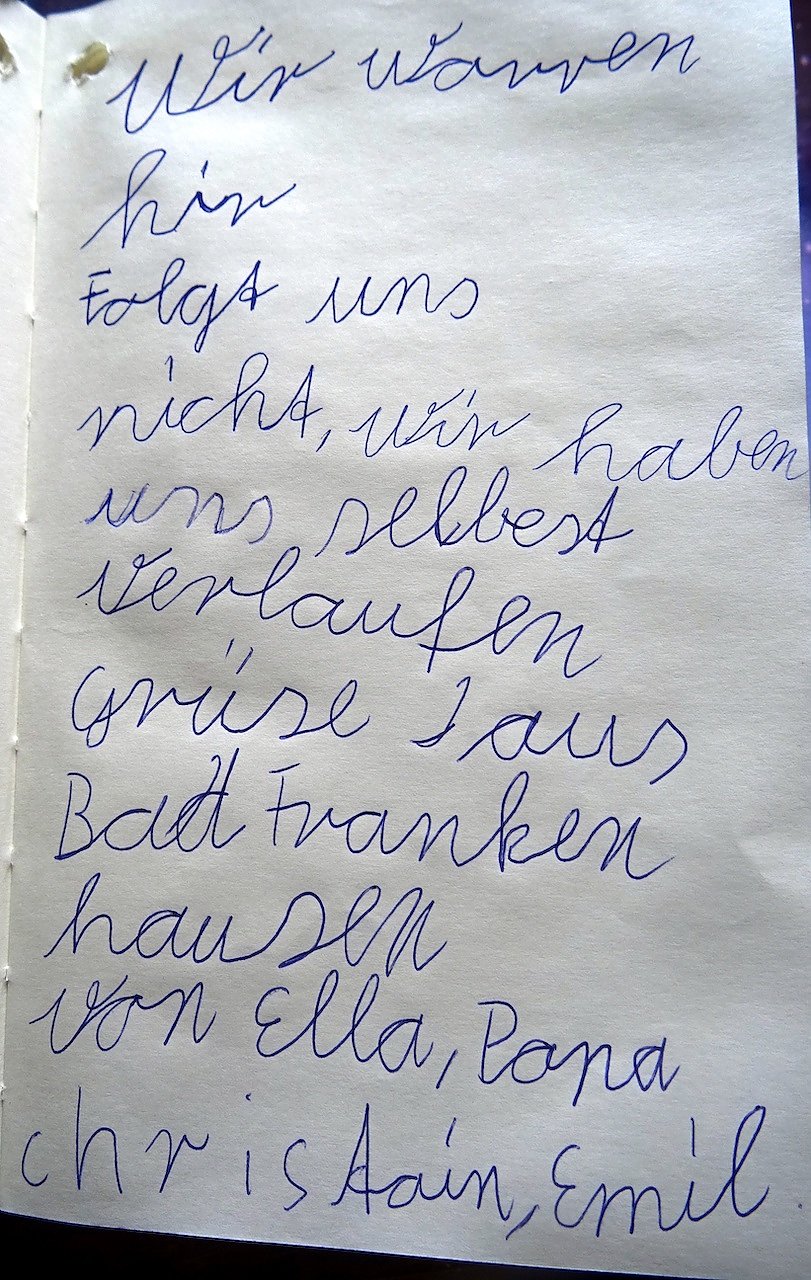 Wir warren
hir
Folgt uns
nicht, wir haben
uns selbest
verlaufen
Grüse aus
Bad Franken
hausen
von Ella, Papa
christain, Emil